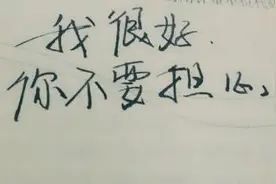 我很好.
你不要担心,